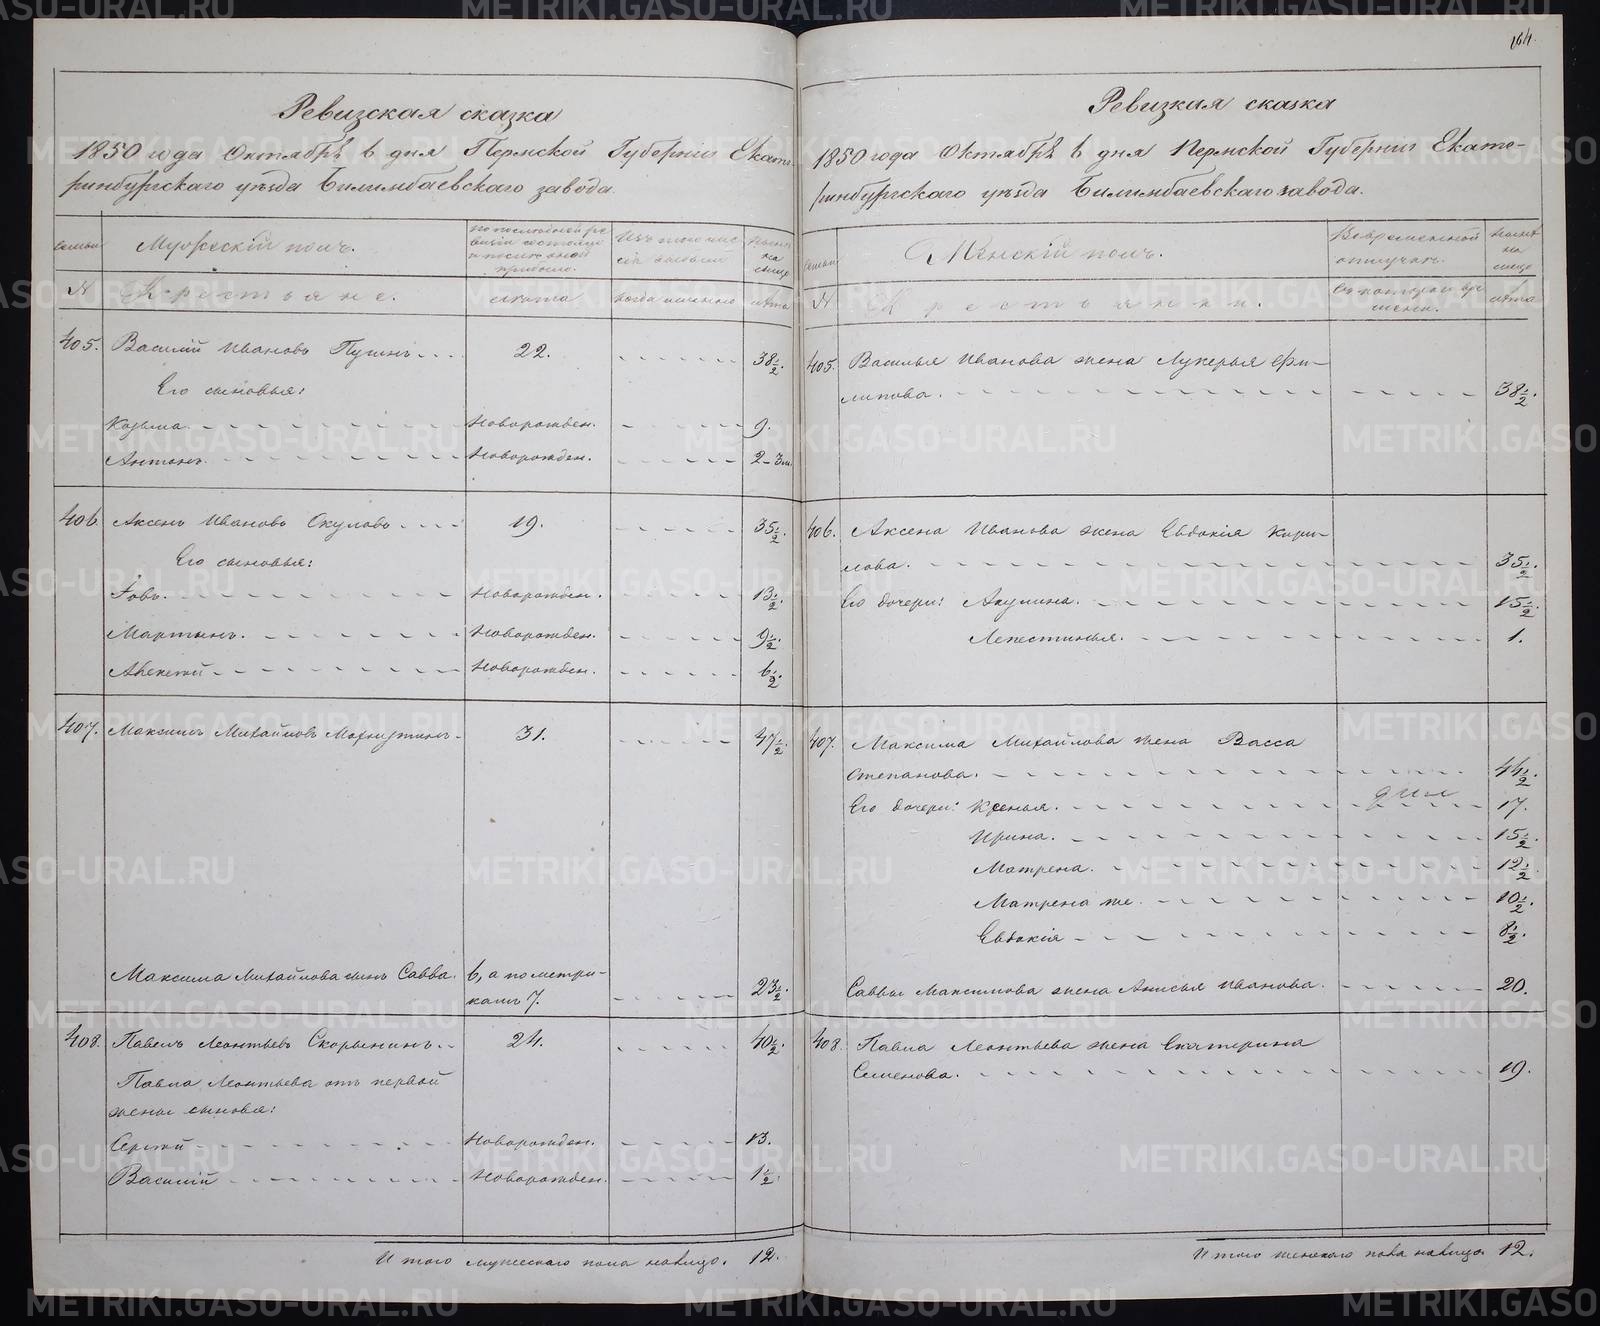 164.
Ревизская сказка
1850 года Октября 6 дня Пермской Губернии Екате-
ринбургскаго уѣзда Билимбаевскаго завода.
семьи Мужескій полъ. По последней ре
визіи состояло
и после оной
прибыло. Изъ того чис
ла выбыло Ныне
на
лицо
№ Крестьяне. лѣта Когда именно лѣта
405. Василій Ивановъ Пушинъ 22. 38½.
Его сыновья:
Козьма. Новорожден. 9.
Антонъ. Новорожден. 2-3 м.
406. Аксенъ Ивановъ Окуловъ 19. 35½.
Его сыновья:
Іовъ. Новорожден. 13½.
Мартынъ. Новорожден. 9½.
Новорожден. 6½.
407. Максимъ Михайловъ 31. 47½.
Максима Михайлова сынъ Савва. 6, а по метри-
камъ 7. 23½.
408. Павелъ Леонтьевъ Скорынинъ 24. 40½.
Павла Леонтьева отъ первой
жены сыновья:
Сергѣй Новорожден. 13.
Василій Новорожден. 1½.
Итого мужескаго пола налицо. 12.
Ревизкая сказка
1850 года Октября 6 дня Пермской Губерніи Екате-
ринбургскаго уѣзда Билимбаевскаго завода.
семьи Женскій полъ. Во временной
отлучке. Ныне
на
лицо
№ Крестьянки. Съ котораго вре
мени. лѣта
405. Василья Иванова жена Лукерья Фи-
липова. 38½.
406. Аксена Иванова жена Евдокія Кири-
лова. 35½.
Его дочери: Акулина. 15½.
Лепестинья. 1.
407. Максима Михайлова жена Васса
Степанова. 44½.
Его дочери: Ксенья. 17.
Ирина. 15½.
Матрена. 12½.
Матрена же. 10½.
Евдокія 8½.
Саввы Максимова жена Анисья Иванова. 20.
408. Павла Леонтьева жена Екатерина
Семенова. 19.
Итого женскаго пола налицо. 12.
METRIKI.GASO-URAL.RU